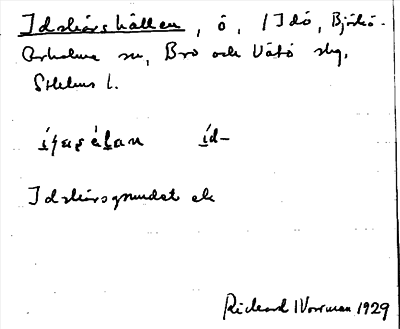 Idskärshällen, ö, / Idö, Björkö-
Arholma sn, Bro och Vätö skg,
Sthlms l.
íd-
Idskärsgrundet ek
Rickard Norrman 1929